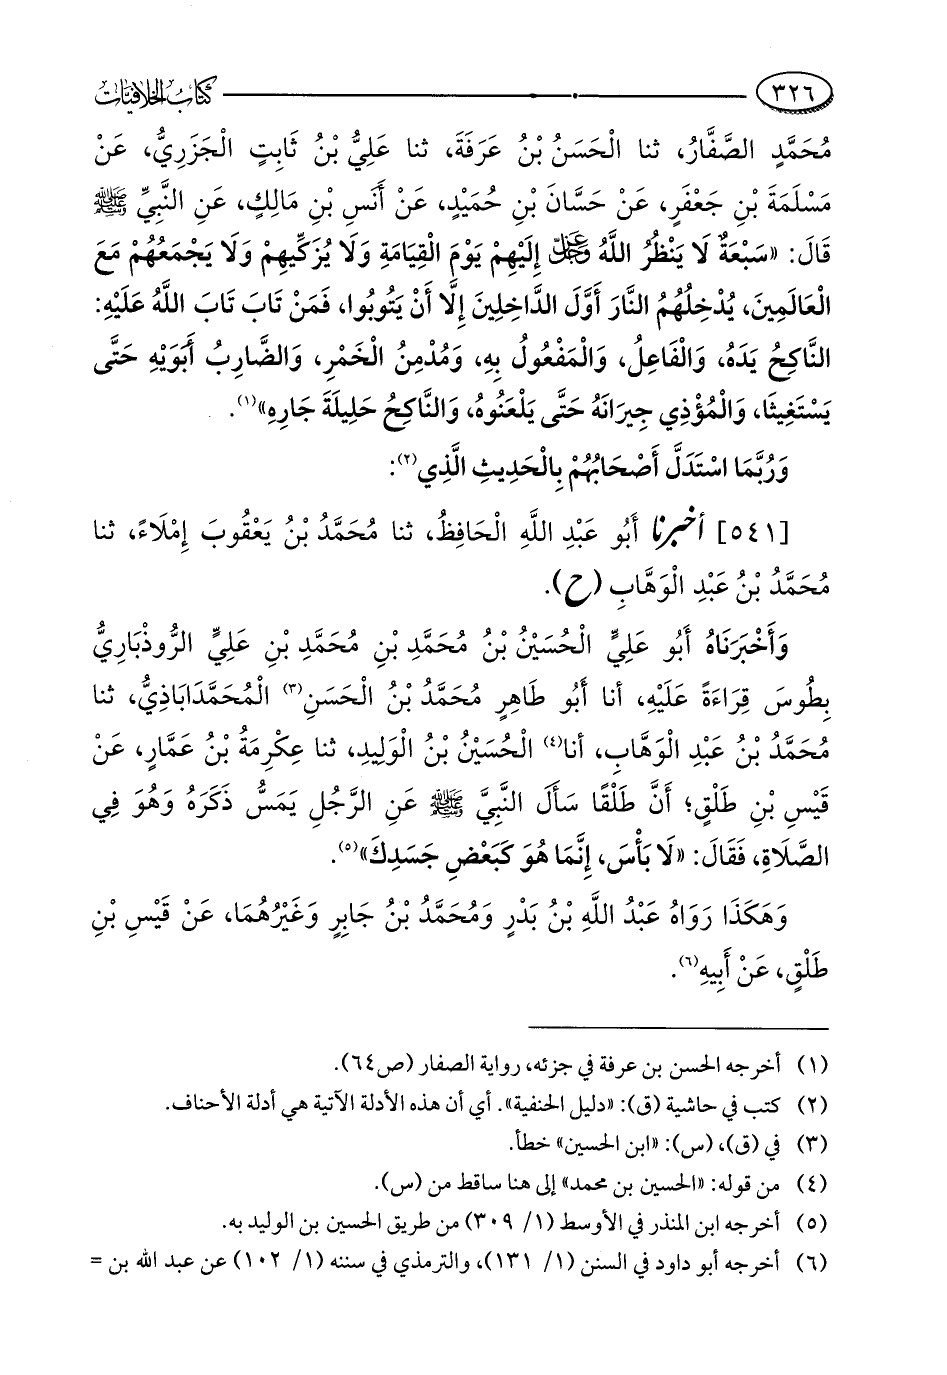 ٣٢٦ كتاب الخلافيات
مُحَمَّدٍ الصَّفَّارُ، ثنا الْحَسَنُ بْنُ عَرَفَةَ، ثنا عَلِيُّ بْنُ ثَابِتٍ الْجَزَرِيُّ، عَنْ
مَسْلَمَةَ بْنِ جَعْفَرٍ، عَنْ حَسَّانَ بْنِ حُمَيْدٍ، عَنْ أَنَسِ بْنِ مَالِكٍ، عَنِ النَّبِيِّ ﷺ
قَالَ: «سَبْعَةٌ لَا يَنْظُرُ اللَّهُ عَزَّ وَجَلَّ إِلَيْهِمْ يَوْمَ الْقِيَامَةِ وَلَا يُزَكِّيهِمْ وَلَا يَجْمَعُهُمْ مَعَ
الْعَالَمِينَ، يُدْخِلُهُمُ النَّارَ أَوَّلَ الدَّاخِلِينَ إِلَّا أَنْ يَتُوبُوا، فَمَنْ تَابَ تَابَ اللَّهُ عَلَيْهِ:
النَّاكِحُ يَدَهُ، وَالْفَاعِلُ، وَالْمَفْعُولُ بِهِ، وَمُدْمِنُ الْخَمْرِ، وَالضَّارِبُ أَبَوَيْهِ حَتَّى
يَسْتَغِيثَا، وَالْمُؤْذِي جِيرَانَهُ حَتَّى يَلْعَنُوهُ، وَالنَّاكِحُ حَلِيلَةَ جَارِهِ»(١).
وَرُبَّمَا اسْتَدَلَّ أَصْحَابُهُمْ بِالْحَدِيثِ الَّذِي(٢):
[٥٤١] أخبرنا أَبُو عَبْدِ اللَّهِ الْحَافِظُ، ثنا مُحَمَّدُ بْنُ يَعْقُوبَ إِمْلَاءً، ثنا
مُحَمَّدُ بْنُ عَبْدِ الْوَهَّابِ (ح).
وَأَخْبَرَنَاهُ أَبُو عَلِيٍّ الْحُسَيْنُ بْنُ مُحَمَّدِ بْنِ مُحَمَّدِ بْنِ عَلِيٍّ الرُّوذْبَارِيُّ
بِطُوسَ قِرَاءَةً عَلَيْهِ، أنا أَبُو طَاهِرٍ مُحَمَّدُ بْنُ الْحَسَنِ(٣) الْمُحَمَّدَابَاذِيُّ، ثنا
مُحَمَّدُ بْنُ عَبْدِ الْوَهَّابِ، أنا(٤) الْحُسَيْنُ بْنُ الْوَلِيدِ، ثنا عِكْرِمَةُ بْنُ عَمَّارٍ، عَنْ
قَيْسِ بْنِ طَلْقٍ؛ أَنَّ طَلْقًا سَأَلَ النَّبِيَّ ﷺ عَنِ الرَّجُلِ يَمَسُّ ذَكَرَهُ وَهُوَ فِي
الصَّلَاةِ، فَقَالَ: «لَا بَأْسَ، إِنَّمَا هُوَ كَبَعْضِ جَسَدِكَ»(٥).
وَهَكَذَا رَوَاهُ عَبْدُ اللَّهِ بْنُ بَدْرٍ وَمُحَمَّدُ بْنُ جَابِرٍ وَغَيْرُهُمَا، عَنْ قَيْسِ بْنِ
طَلْقٍ، عَنْ أَبِيهِ(٦).
(١) أخرجه الحسن بن عرفة في جزئه، رواية الصفار (ص٦٤).
(٢) كتب في حاشية (ق): «دليل الحنفية». أي أن هذه الأدلة الآتية هي أدلة الأحناف.
(٣) في (ق)، (س): «ابن الحسين» خطأ.
(٤) من قوله: «الحسين بن محمد» إلى هنا ساقط من (س).
(٥) أخرجه ابن المنذر في الأوسط (١/ ٣٠٩) من طريق الحسين بن الوليد به.
(٦) أخرجه أبو داود في السنن (١/ ١٣١)، والترمذي في سننه (١/ ١٠٢) عن عبد الله بن =